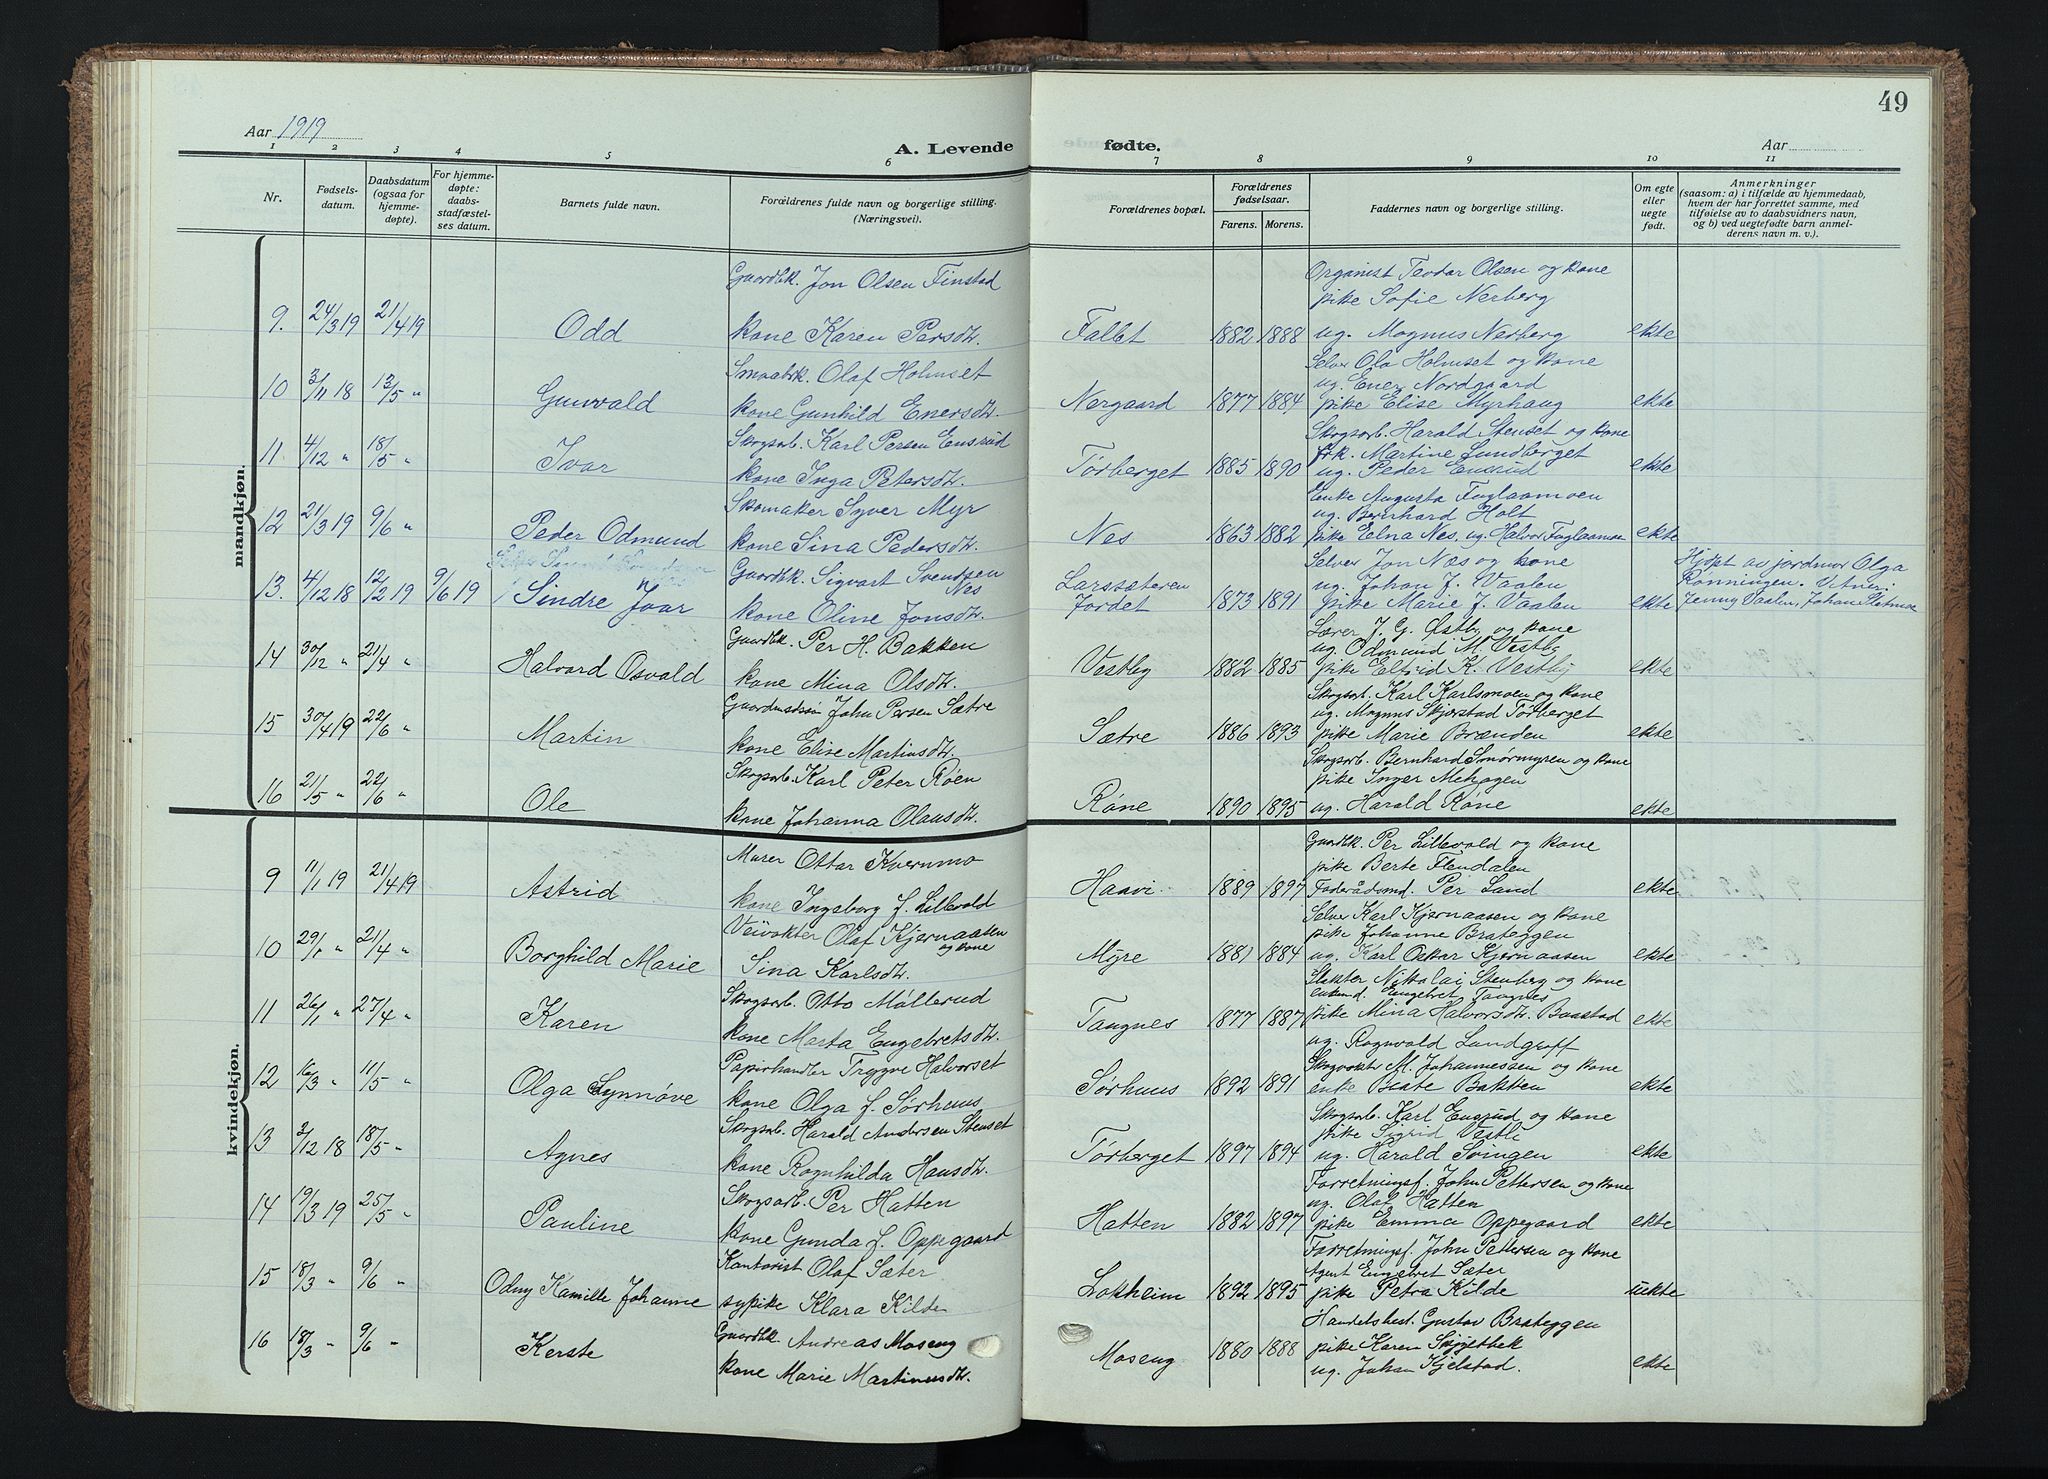 49
Aar 1919
A. Levende fødte.
Aar
1 2 3 4 5 6 7 8 9 10 11
Nr.
Fødselsdatum.
Daabsdatum (ogsaa for hjemmedøpte).
For hjemmedøpte: daabsstadfæstelses datum.
Barnets fulde navn.
Forældrenes fulde navn og borgerlige stilling. (Næringsvei).
Forældrenes bopæl.
Forældrenes fødselsaar.
Farens. Morens.
Faddernes navn og borgerlige stilling.
Om egte eller uegte født.
Anmerkninger
(saasom: a) i tilfælde av hjemmedaab,
hvem der har forrettet samme, med
tilføielse av to daabsvidners navn,
og b) ved uegtefødte barn anmelderens navn m. v.).
mandkjøn.
Gaardbk. Jon Olsen Finstad
Organist Teodor Olsen og kone
pike Sofie Nerberg
9. 24/3 19 21/4 19 Odd kone Karen Persdtr. Fallet 1882 1888 ug. Magnus Nerberg ekte
Smaabrk. Olaf Holmset
Selver Ola Holmset og kone
ug. Ener Nordgaard
10 3/11 18 13/5 " Gunvald kone Gunhild Enersdtr. Nergaard 1877 1884 pike Elise Myrhaug ekte
Skogsarb. Karl Persen Ensrud
Skogsarb. Harald Stenset og kone
frk. Martine Lundberget
11 4/12 " 18/5 " Ivar kone Inga Petersdtr. Tørberget 1885 1890 ug. Peder Ensrud ekte
Skomaker Syver Myr
Enke Augusta Fuglaamoen
ug. Bernhard Holt
12 21/3 19 9/6 " Peder Odmund kone Sina Pedersdtr. Nes 1863 1882 pike Elna Nes, ug. Halvor Fuglaamoen ekte
Gaardbk. Sigvart Svendsen Nes
Larssæteren
Selver Jon Næs og kone
ug. Johan J. Vaalen
Hjdpt av jordmor Olga
Rønningen. Vitner:
13. 4/12 18 12/2 19 9/6 19 Sindre Ivar kone Oline Jonsdtr. Jordet 1873 1891 pike Marie J. Vaalen ekte Jenny Vaalen, Johan Sletmoe
Gaardbk. Per H. Bakken
Lærer J. G. Østby og kone
ug. Odmund M. Vestby
14 30/12 " 21/4 " Halvard Osvald kone Mina Olsdtr. Vestby 1882 1885 pike Elfrid K. Vestby ekte
Gaardmdssøn John Persen Sætre
Skogsarb. Karl Karlsmoen og kone
ug. Magnus Skjerstad Tørberget
15 30/4 19 22/6 " Martin kone Elise Martinsdtr. Sætre 1886 1893 pike Marie Brænden ekte
Skogsarb. Karl Peter Røen
Skogsarb. Bernhard Smørmyren og kone
pike Inger
16 21/5 " 22/6 " Ole kone Johanna Olausdtr. Røne 1890 1895 ug. Harald Røne ekte
kvindekjøn.
Murer Ottar Kvernmo
Gaardbk. Per Lillevold og kone
pike Berte Flendalen
9 11/1 19 21/4 19 Astrid kone Ingeborg f. Lillevold Haavi 1889 1897 Føderådsmd. Per Lund ekte
Veivokter Olaf Kjernaasen og kone
Selver Karl Kjernaasen og kone
pike Johanne Brateggen
10 29/1 " 21/4 " Borghild Marie Sina Karlsdtr. Myre 1881 1884 ug. Karl Oskar Kjernaasen ekte
Skogsarb. Otto Møllerud
Slakter Nikolai Stenberg og kone
enkemd. Engebret Taugnes
11 26/1 " 27/4 " Karen kone Marta Engebretsdtr. Taugnes 1877 1887 pike Mina Halvorsdtr. Baastad ekte
Papirhandler Trygve Halvorset
ug. Ragnvald Lundgreff
Skogvokter M. Johannessen og kone
12 16/3 " 11/5 " Olga Synnøve kone Olga f. Sørhuus Sørhuus 1892 1891 enke Beate Bakken ekte
Skogsarb. Harald Andersen Stenset
Skogsarb. Karl Ensrud og kone
pike Sigrid Vestli
13 3/12 18 18/5 " Agnes kone Ragnhilda Hansdtr. Tørberget 1897 1894 ug. Harald Svingen ekte
Skogsarb. Per Hatten
Forretningsf. John Pettersen og kone
ug. Olaf Hatten
14 19/3 19 25/5 " Pauline kone Gunda f. Oppegaard Hatten 1882 1897 pike Emma Oppegaard ekte
Kontorist Olaf Sæter
Forretningsf. John Pettersen og kone
Agent Engebret Sæter
15 18/3 " 9/6 " Odny Kamille Johanne sypike Klara Kilde Lokheim 1892 1895 pike Petra Kilde uekte
Gaardbk. Andreas Moseng
Handelsbest. Gustav Brateggen
pike Karen Skjøtbek
16 18/3 " 9/6 " Kerste kone Marie Martinusdtr. Moseng 1880 1888 ug. Johan Kjelstad. ekte